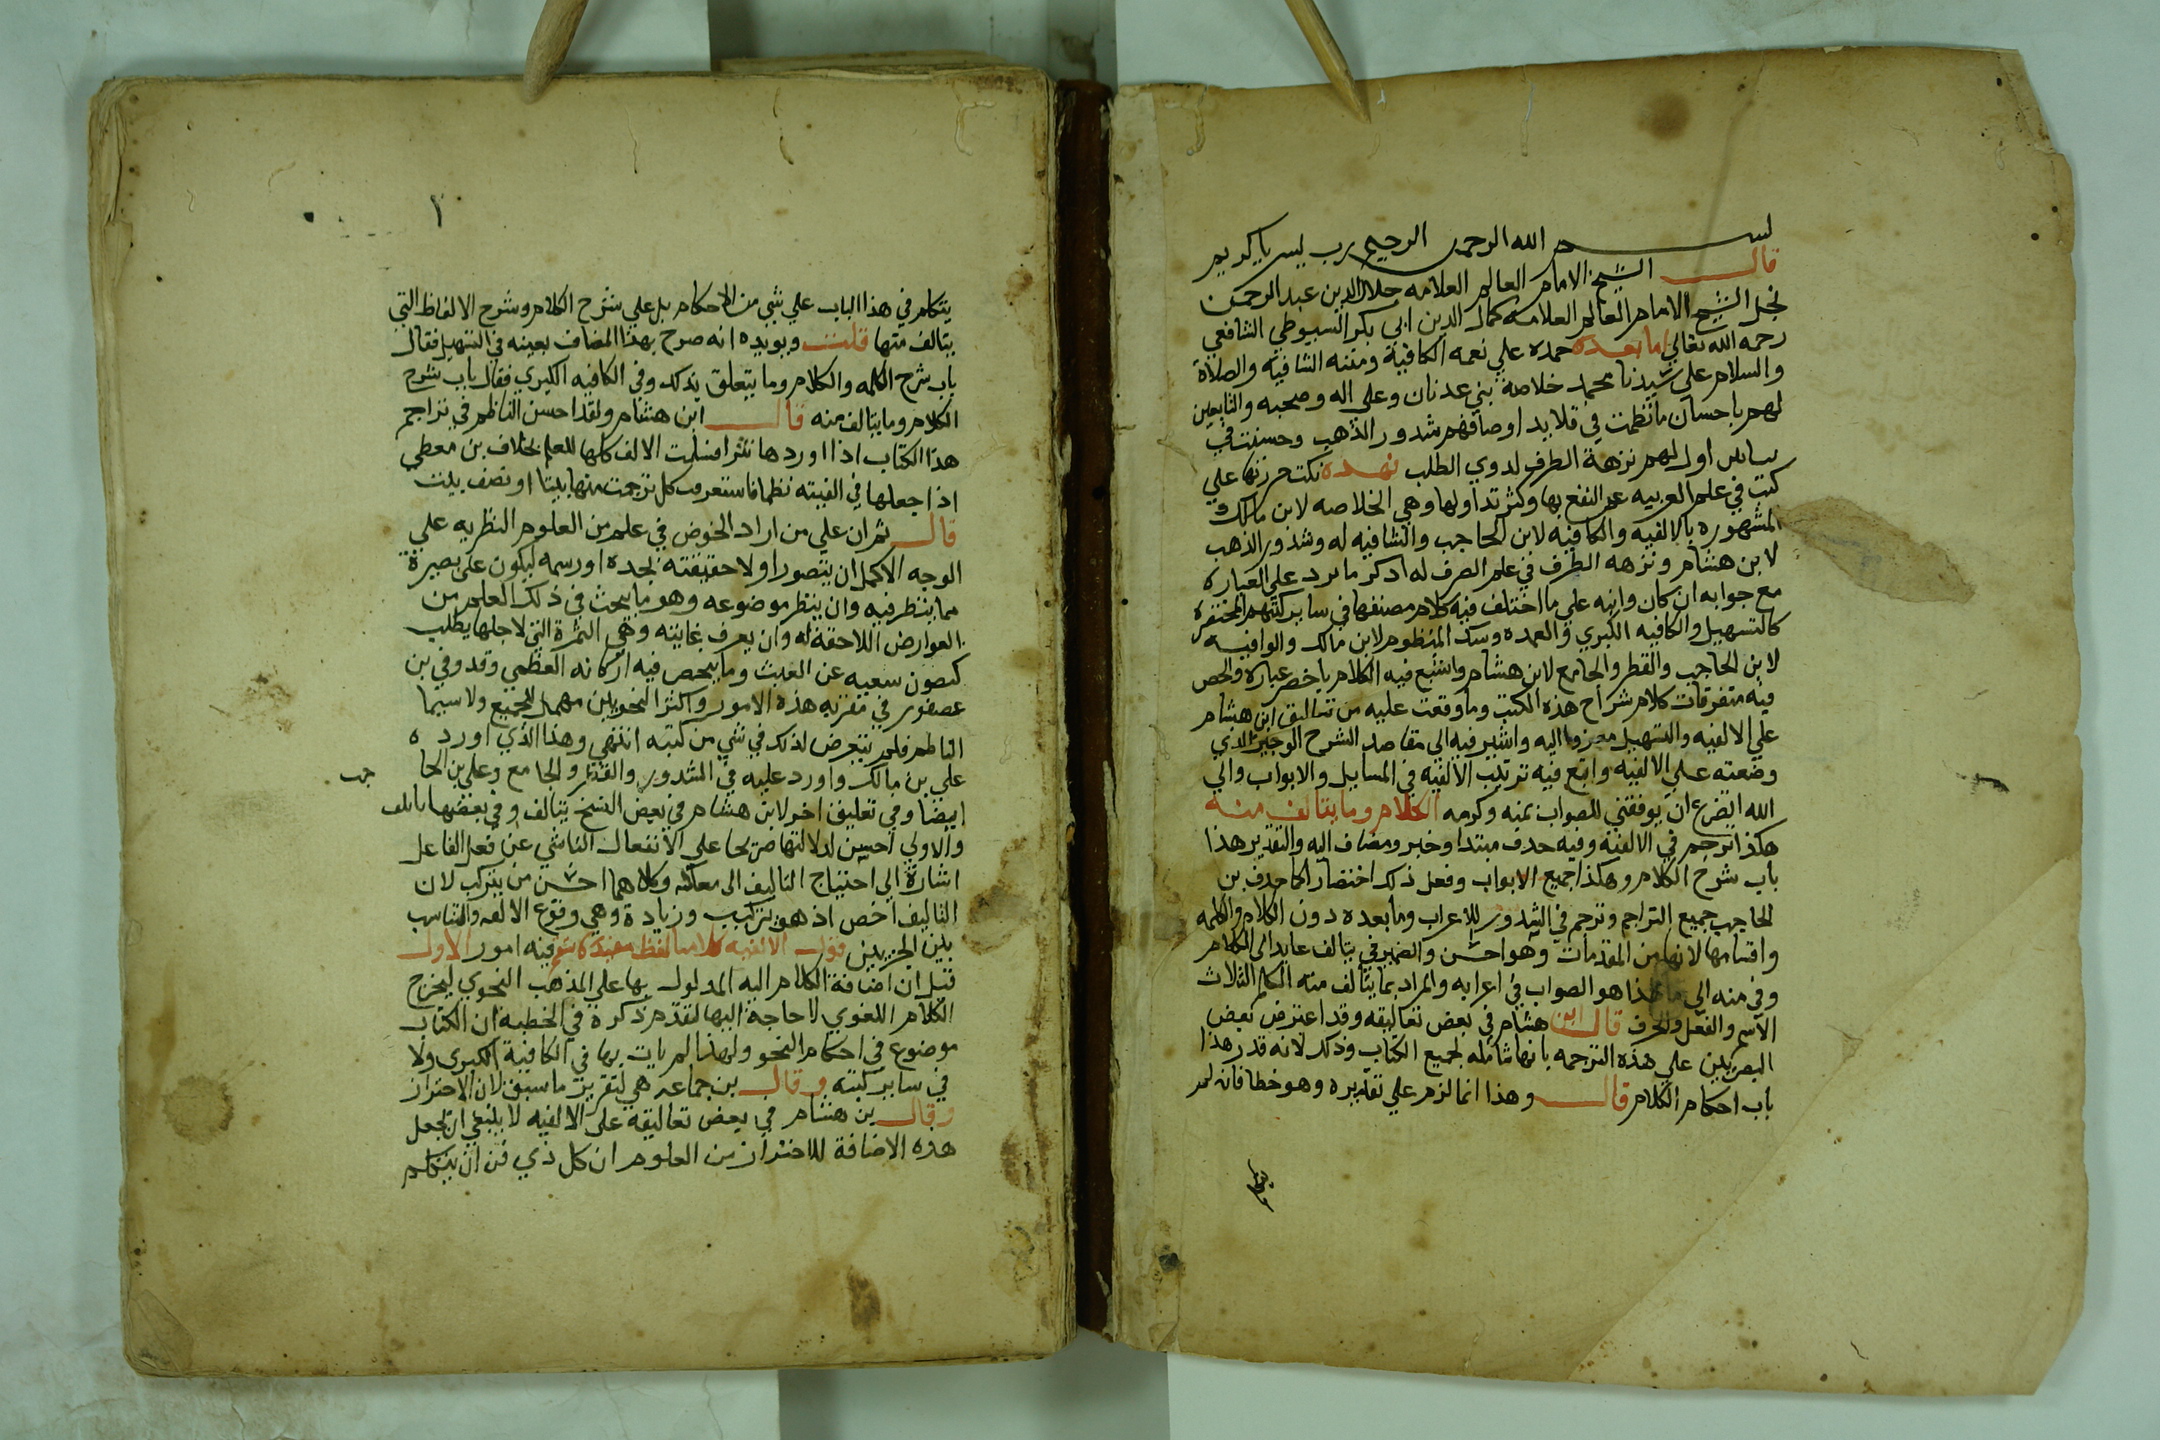 بســـــم الله الرحمن الرحيم رب يسر ياكريم
قال الشيخ الامام العالم العلامه جلال الدين عبد الرحمن
نجل الشيخ الامام العالم العلامه كمال الدين ابي بكر السيوطي الشافعي
رحمه الله تعالي اما بعد حمده علي نعمه الكافية ومننه الشافيه والصلاة
والسلام علي سيدنا محمد خلاصة بني عدنان وعلي اله وصحبه والتابعين
لهم باحسان ما نظمت في قلايد اوصافهم شذور الذهب وحسنت في
اول لهم نزهة الطرف لدوي الطلب فهده نكت حررتها علي
كتب في علم العربيه عم النفع بها وكثر تداولها وهي الخلاصه لابن مالك
المشهوره بالالفيه والكافيه لابن الحاجب والشافيه له وشدور الذهب
لابن هشام ونزهه الطرف في علم الصرف له ادكر ما يرد علي العباره
مع جوابه ان كان وانبه علي ما اختلف فيه كلام مصنفها في ساير كتبهم المختصره
كالتسهيل والكافيه الكبري والعمده وسبك المنظوم لابن مالك والوافيه
لابن الحاجب والقطر والجامع لابن هشام واشبع فيه الكلام باخصر عباره والخص
فيه متفرقات كلام شراح هذه الكتب وما وقعت عليه من تعاليق ابن هشام
علي الالفيه والتسهيل معزوا اليه واشير فيه الي مقاصد الشرح الوجيز الذي
وضعته علي الالفيه واتبع فيه ترتيب الالفيه في المسايل والابواب والي
الله اتضرع ان يوفقني للصواب بمنه وكرمه الكلام وما يتالف منه
هكذا ترجم في الالفية وفيه حدف مبتدا وخبر ومضاف اليه والتقدير هذا
باب شرح الكلام وهكذا جميع الابواب وفعل ذلك اختصارا كما حدف بن
الحاجب جميع التراجم وترجم في الشدور للاعراب وما بعده دون الكلام والكلمه
واقسامها لانها من المقدمات وهو احسن والضمير في يتالف عايد الي الكلام
وفي منه الي ما هذا هو الصواب في اعرابه والمراد بما يتالف منه الكلم الثلاث
الاسم والفعل والحرف قال ابن هشام في بعض تعاليقه وقد اعترض بعض
علي هذه الترجمه بانها شامله لجميع الكتاب وذلك لانه قدر هذا
باب احكام الكلام قال وهذا انما لزم علي تقديره وهو خطا فانه لم
يتكلم
يتكلم في هذا الباب علي شي من الاحكام بل علي شرح الكلام وشرح الالفاظ التي
يتالف منها قلت ويويده انه صرح بهذا المضاف بعينه في التسهيل فقال
باب شرح الكلمه والكلام وما يتعلق بذلك وفي الكافيه الكبري فقال باب شرح
الكلام وما يتالف منه قال ابن هشام ولقد احسن الناظم في تراجم
هذا الكتاب اذا اوردها نثرا فسلمت الالف كلها للعلم بخلاف بن معطي
اذا جعلها في الفيته نظما فاستغرقت كل ترجمت منها بيتا او نصف بيت
قال ثم ان علي من اراد الخوض في علم من العلوم النظريه علي
الوجه الاكمل ان يتصور اولا حقيقته بحده او رسمه ليكون علي بصيرة
مما ينظر فيه وان ينظر موضوعه وهو ما يبحث في ذلك العلم من
العوارض اللاحقة له وان يعرف غايته وهي الثمرة التي لاجلها يطلب
كيصون سعيه عن العبث وما ينحصر فيه اركانه العظمي وقد وفي بن
عصفور في مقربه هذه الامور واكثر النحويين مهمل للجميع ولا سيما
الناظم فلم يتعرض لذلك في شي من كتبه انتهي وهذا الذي اورده
علي بن مالك وارد عليه في الشدور والقطر والجامع وعلي بن الحا
جب
ايضا وفي تعليق اخر لابن هشام في بعض النسخ يتالف وفي بعضها ياتلف
والاولي احسن لدلالتها صريحا علي الانفعال الناشي عن فعل الفاعل
اشارة الي احتياج التاليف الي معالجه وكلاهما احسن من يتركب لان
التاليف اخص اذ هو تركيب وزيادة وهي وقوع الالفه والتناسب
بين الجزيين قوله الالفيه كلامنا لفظ مفيد كاستقم فيه امور الاول
قيل ان اضافة الكلام اليه المدلول بها علي المذهب النحوي ليخرج
الكلام اللغوي لا حاجة اليها لتقدم ذكره في الخطبه ان الكتاب
موضوع في احكام النحو ولهذا لم يات بها في الكافية الكبري ولا
في ساير كتبه وقال بن جماعه هي لتقرير ما سبق لان الاحتراز
وقال بن هشام في بعض تعاليقه علي الالفيه لا ينبغي ان تجعل
هذه الاضافة للاحتراز من العلوم ان كل ذي فن ان يتكلم